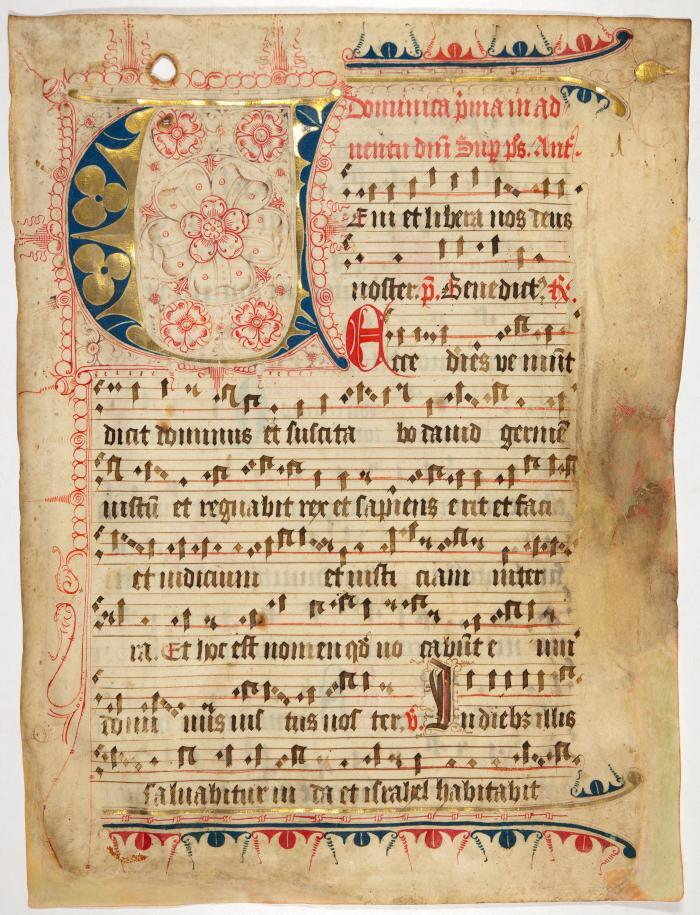 Dominica p̄ma in ad
uentu dn̄i Sup p̄s. Ant̄.
VEni et libera nos deus
noster. p̄. Benedict⁹. R̄.
Ecce dies ve niūt
dicit dominus et suscita bo dauid germē
iustū et regnabit rex et sapiens e rit et faci
et iudicium et iusti ciam in terr
ra. Et hoc est nomen qd̄ uo cabūt e um
domi nus ius tus nos ter. v̄. In diebꝫ illis
saluabitur iu da et israhel habitabit